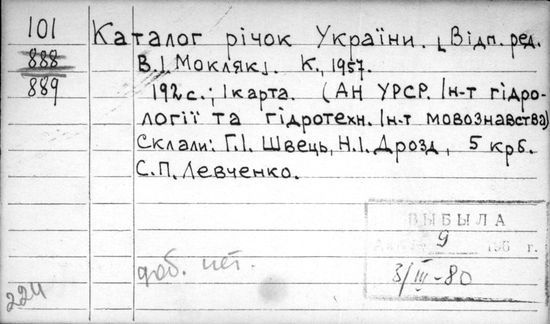 101
888
889
Каталог річок України. [Відп. ред.
В.І Мокляк]. К., 1957.
192 с.; 1 карта. (АН УРСР. Ін-т гідро-
логії та гідротехн. Ін-т мовознавства)
Склали: Г.І. Швець, Н.І. Дрозд, 5 крб.
С.П. Левченко.
ВЫБЫЛА
9 196 г.
3/III-80
доб. нет.
224